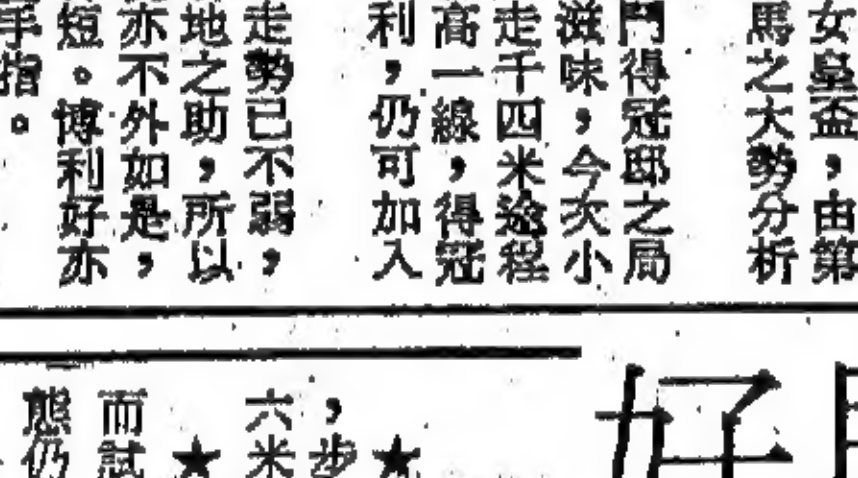 女皇盃，由第
馬之大勢分析
鬥得冠邸之局
滋味，今次小
走千四米途程
高一線，得冠
利，仍可加入
走勢已不弱，
地之助，所以
亦不外如是，
短。博利好亦
手指。
好
★
，步
六米
★
而試
態仍